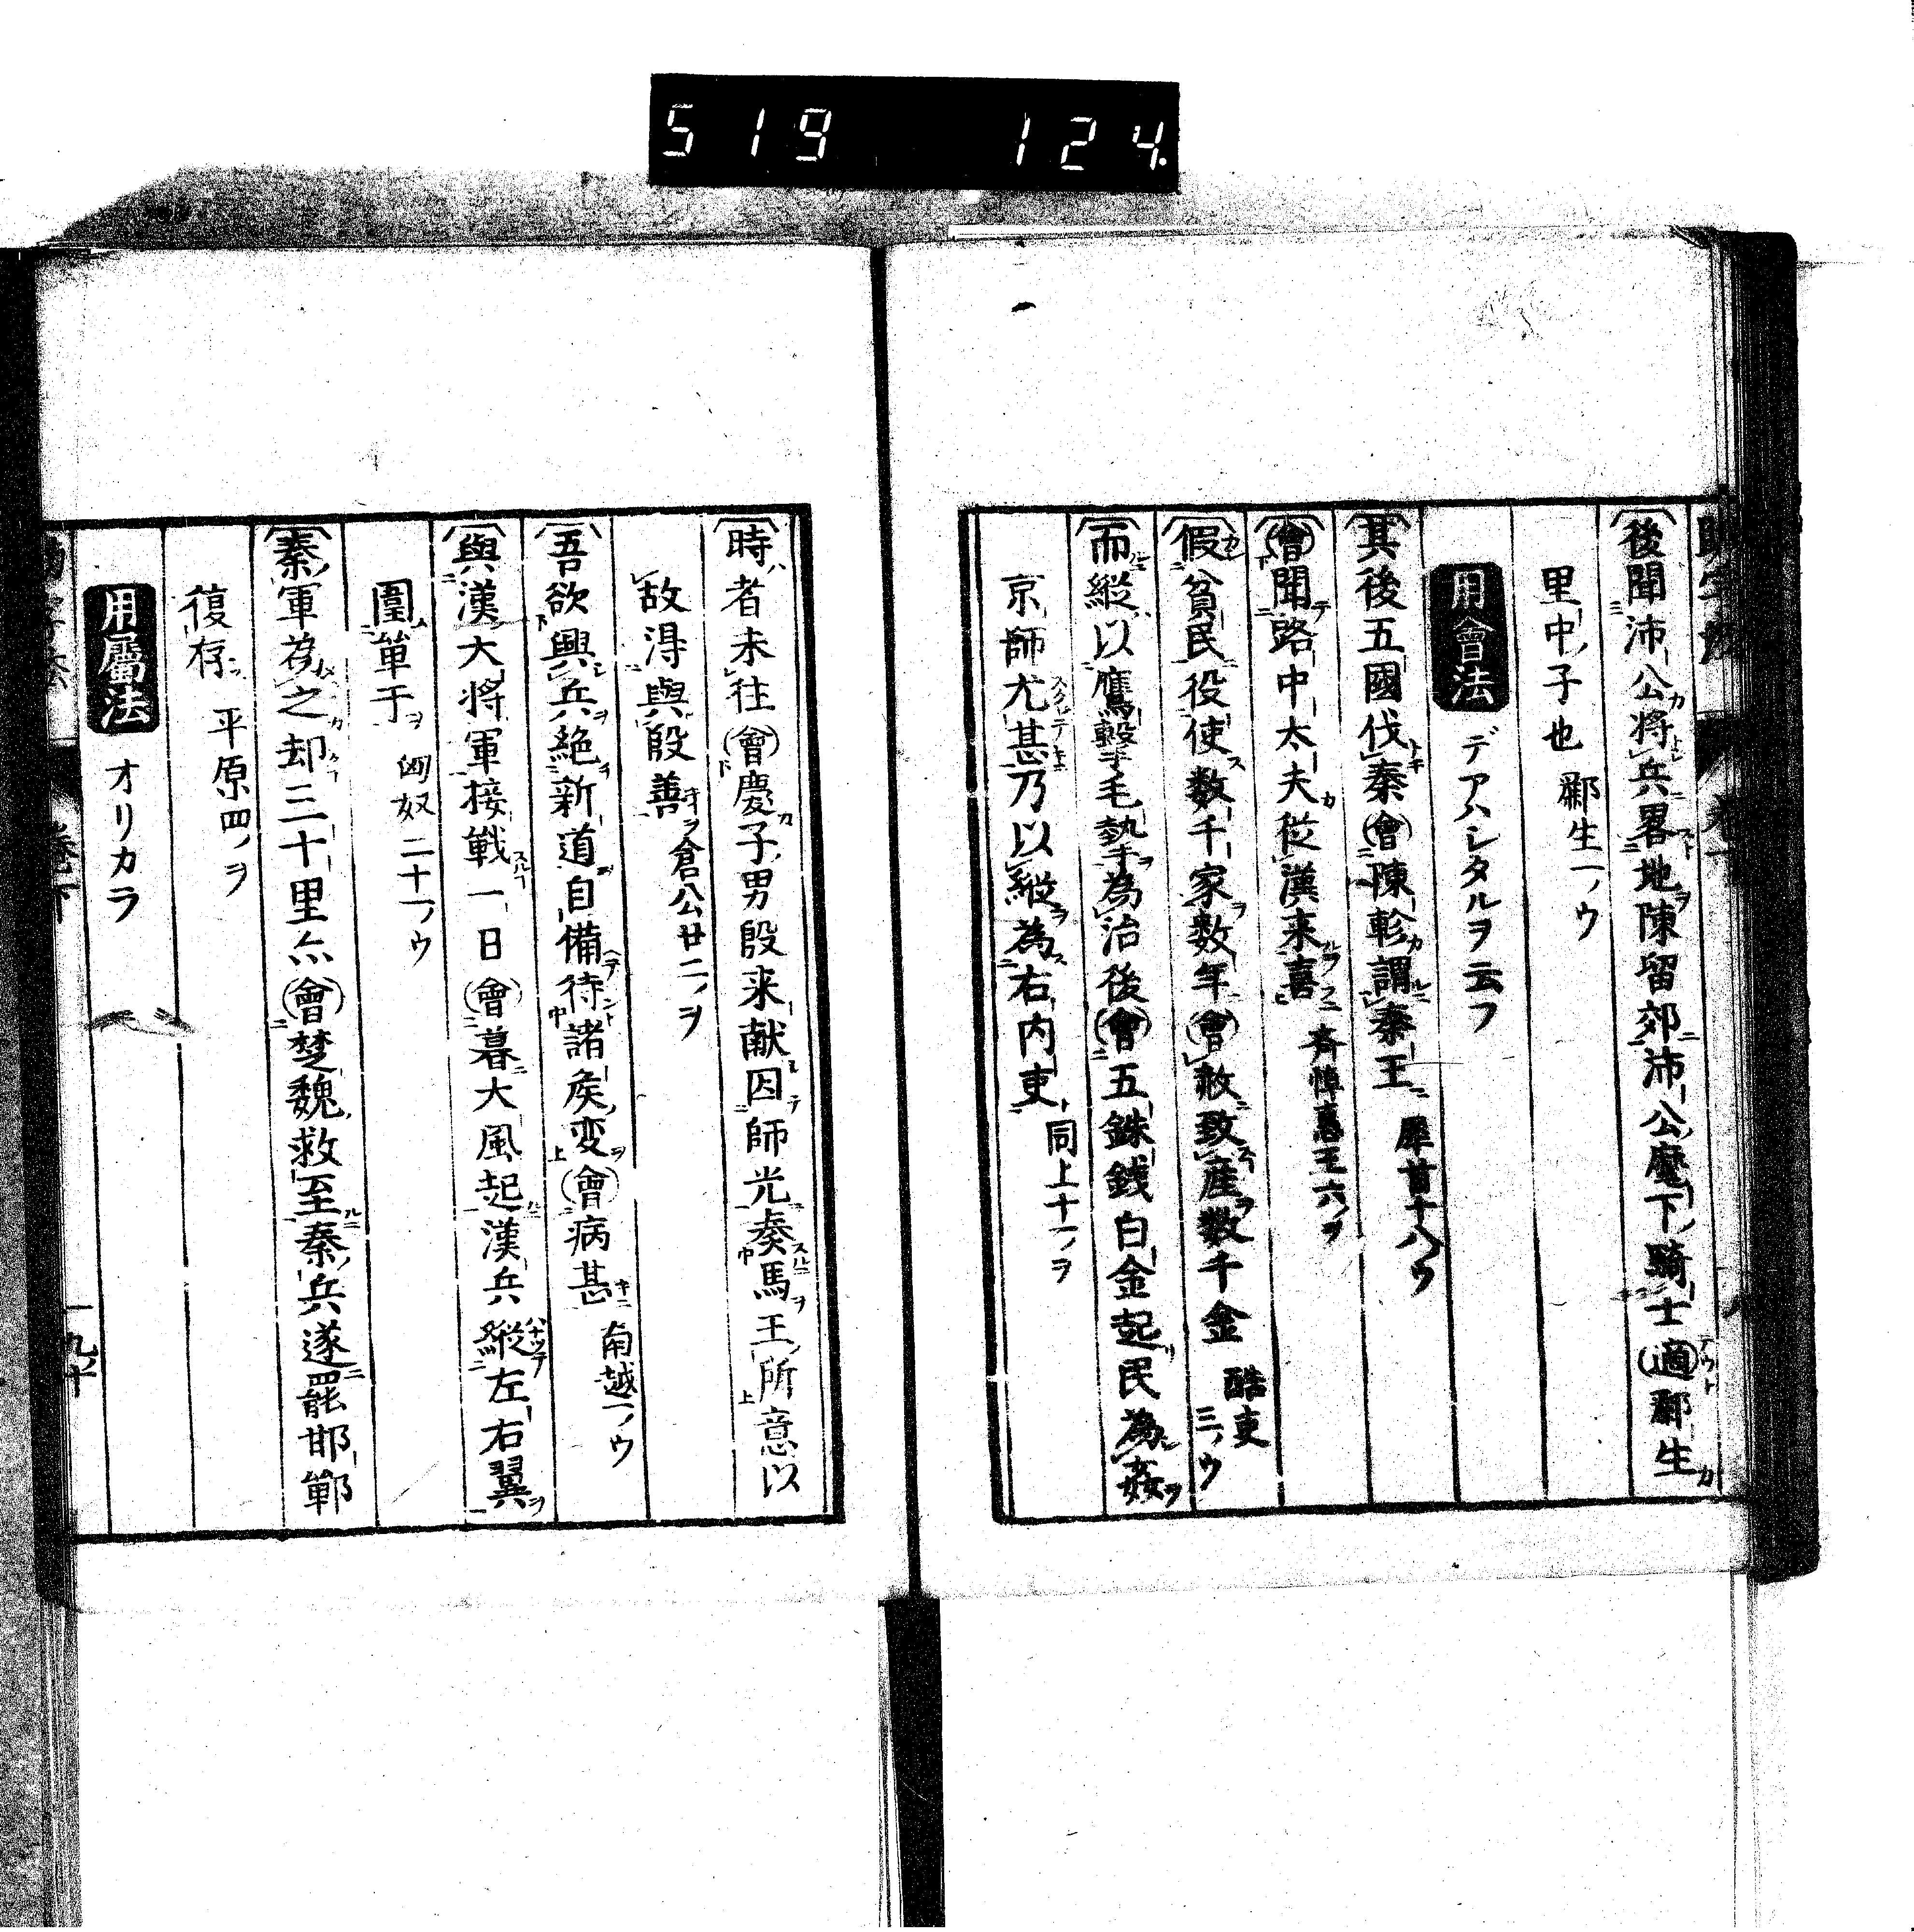 519 124
後聞沛公将兵畧地陳留郊沛公麾下騎士適酈生
里中子也 酈生一ノウ
用會法 デアハシタルヲ云フ
其後五國伐秦會陳軫謂秦王 犀首十八ノウ
會聞路中太夫従漢来喜 斉悼惠王六ノヲ
假貧民役使数千家数年會赦致産数千金 酷吏三ノウ
而縦以鷹擊毛摯為治後會五銖銭白金起民為姦
京師尤甚乃以縦為右内吏 同上十一ノヲ
時者未往會慶子男殷来献因師光奏馬王所意以
故淂與殷善 倉公廿二ノヲ
吾欲興兵絶新道自備待諸矦変會病甚 南越一ノウ
與漢大将軍接戦一日會暮大風起漢兵縦左右翼
圍単于 匈奴二十一ノウ
秦軍為之却三十里亦會楚魏救至秦兵遂罷邯鄲
復存 平原四ノヲ
用屬法 オリカラ